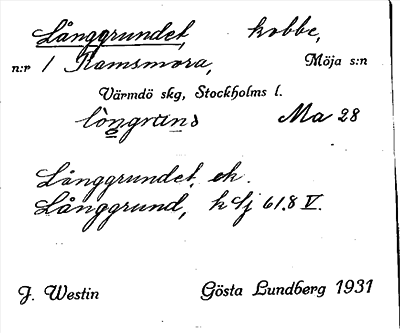 Långgrundet, kobbe,
n:r 1 Ramsmora, Möja s:n
Värmdö skg, Stockholms l.
lòngrund Ma 28
Långgrundet, ek.
Långgrund, h 61.8 V.
J. Westin Gösta Lundberg 1931